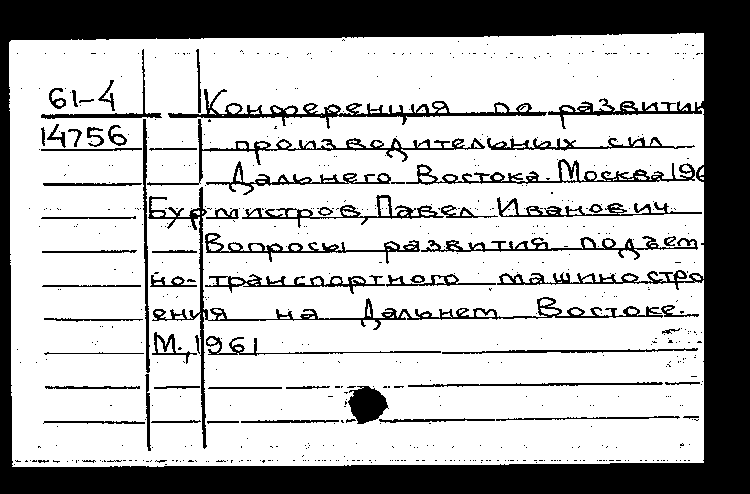 61-4 Конференция по развитию
14756 производительных сил
Дальнего Востока. Москва 196
Бурмистров, Павел Иванович
Вопросы развития подъем-
но-транспортного машиностро
ения на Дальнем Востоке.
М., 1961